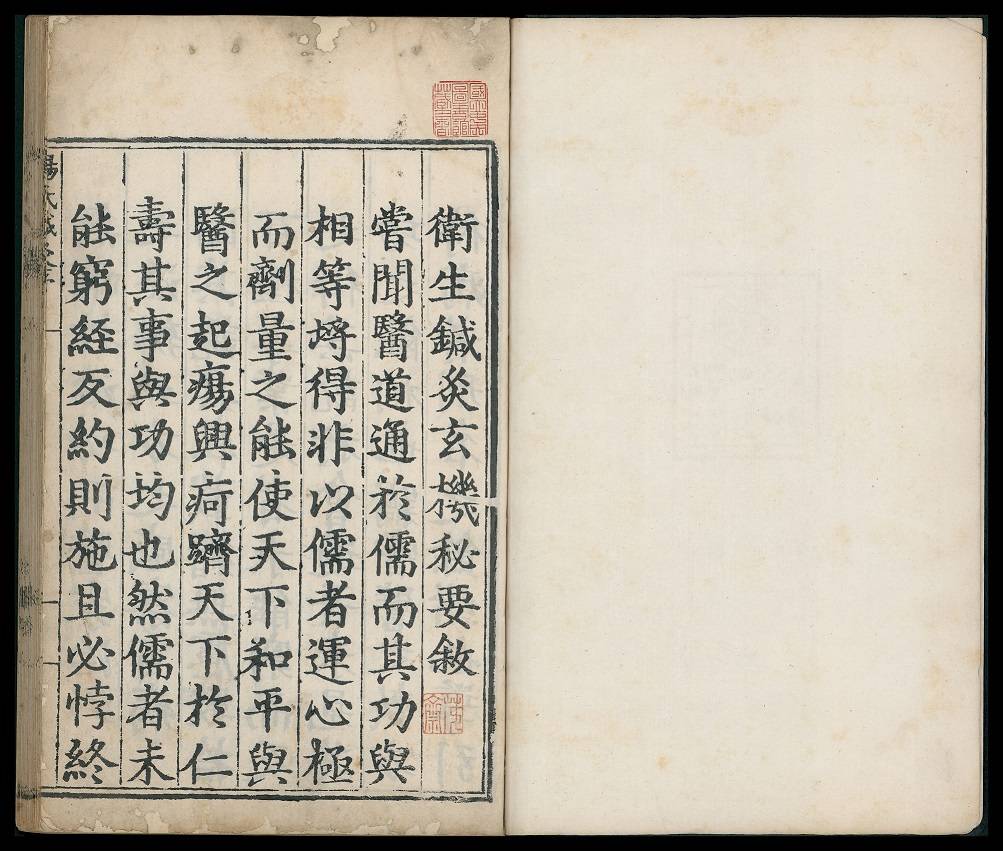 衛生鍼灸玄機秘要敘
嘗聞醫道通於儒而其功與
相等埒得非以儒者運心極
而劑量之能使天下和平與
醫之起瘍興疴躋天下於仁
壽其事與功均也然儒者未
能窮経反約則施且必悖終